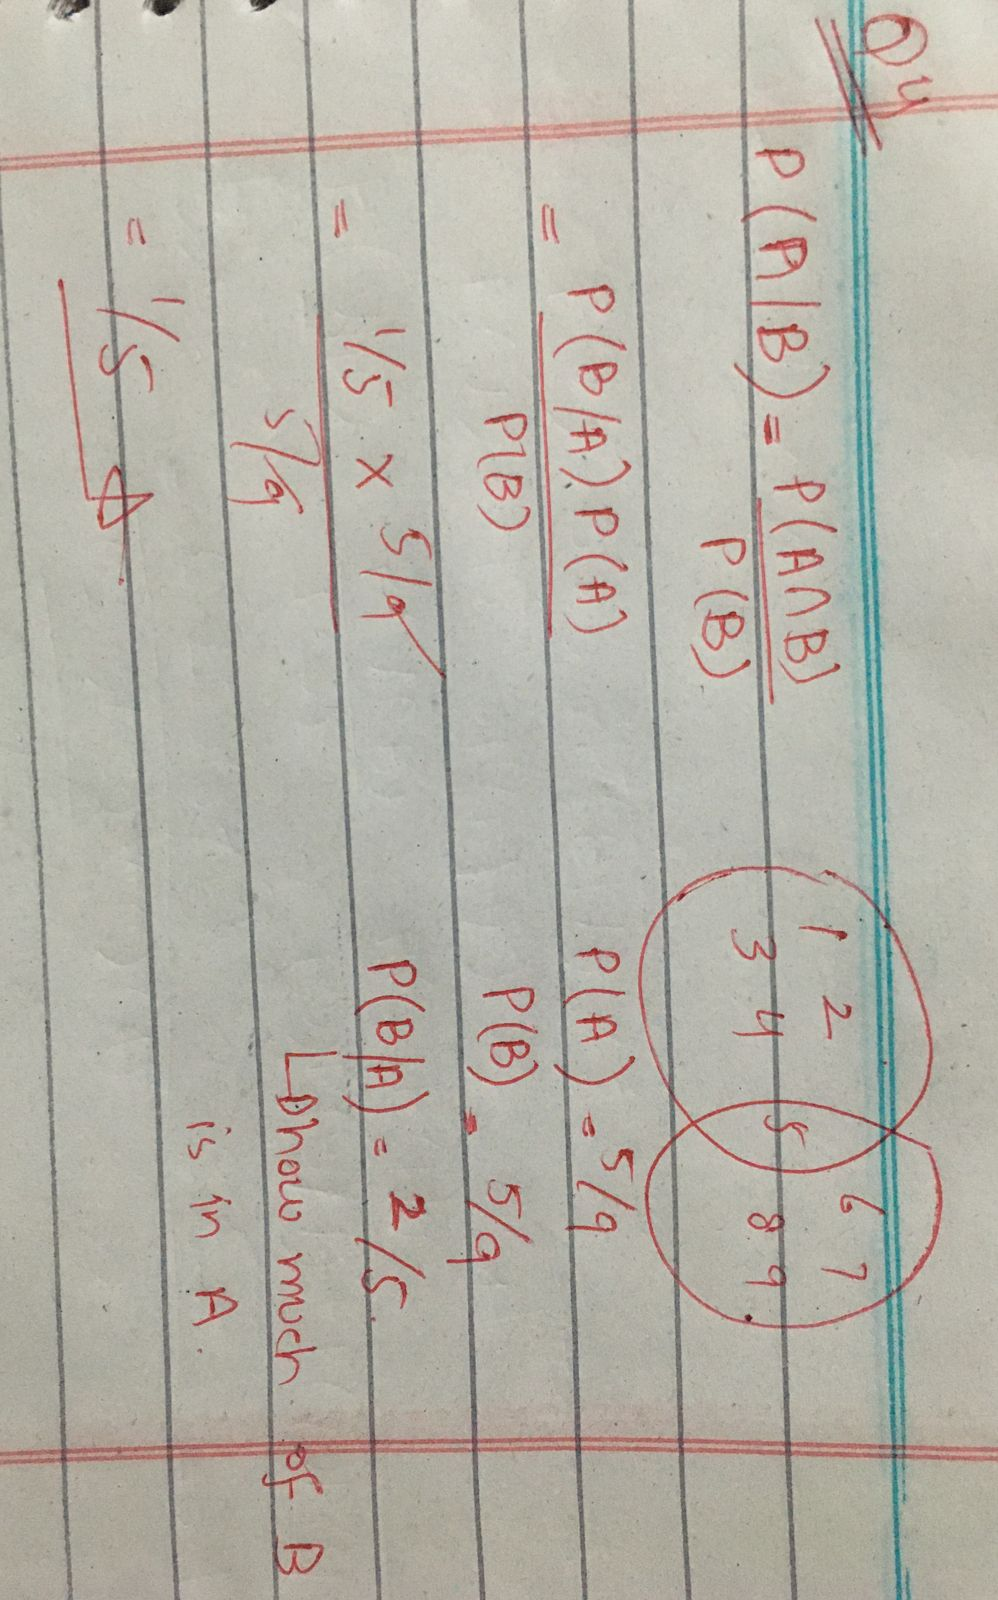 Q4
P(A/B) = P(A∩B)
P(B)
= P(B/A) P(A)
P(B)
= 1/5 × 5/9
5/9
= 1/5
1 2
3 4
5
6 7
8 9
P(A) = 5/9
P(B) = 5/9
P(B/A) = 2/5
how much of B
is in A.